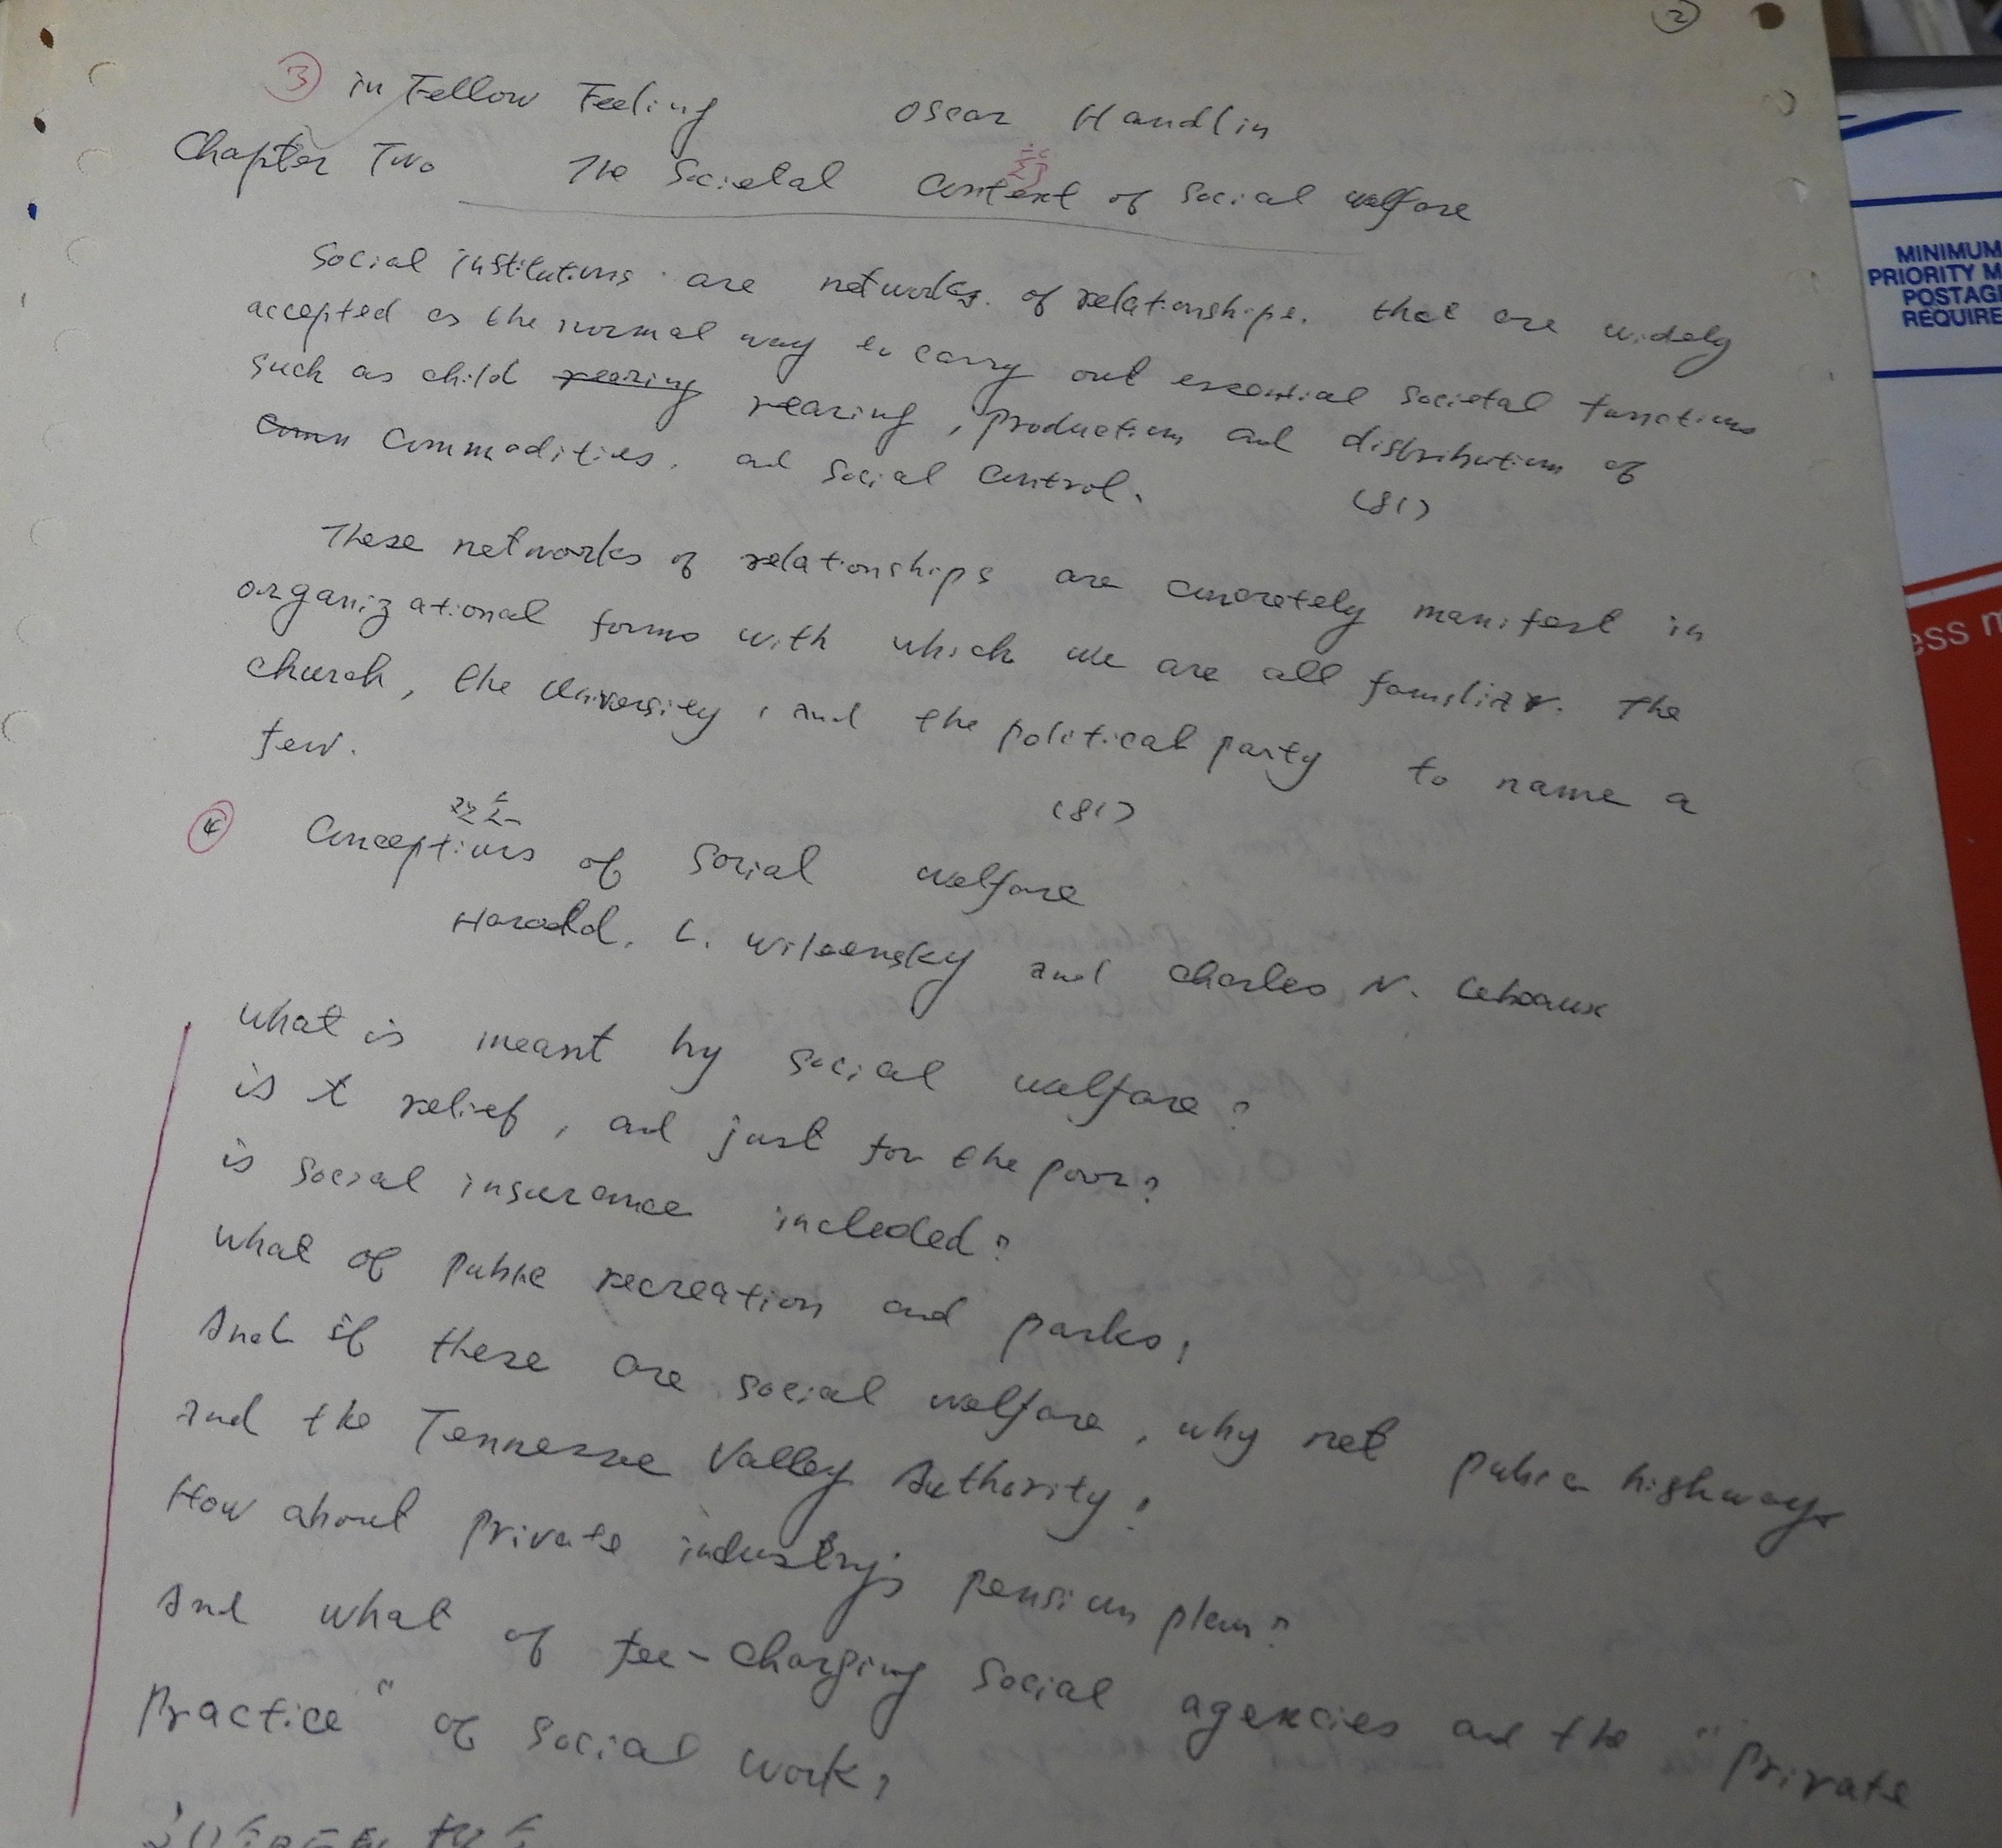 2
3 in Fellow Feeling Oscar Handlin
Chapter Two The Societal Context of Social welfare
Social institutions are networks of relationships. that are widely
accepted as the normal way to carry out essential societal functions
such as child rearing rearing, production and distribution of
Comm Commodities, and Social Control.
(81)
These networks of relationships are concretely manifest in
organizational forms with which we are all familiar. The
church, the University, and the political party to name a
few.
(81)
4 Conceptions of Social welfare
Harold. L. Wilensky and Charles N. Lebeaux
what is meant by social welfare?
is it relief, and just for the poor?
is social insurance included?
what of public recreation and parks?
And if these are social welfare, why not public highways
and the Tennessee Valley Authority?
How about private industry's pension plan?
And what of fee-charging Social agencies and the "Private
Practice" of Social work?
MINIMUM
PRIORITY M
POSTAG
REQUIRE
ess m